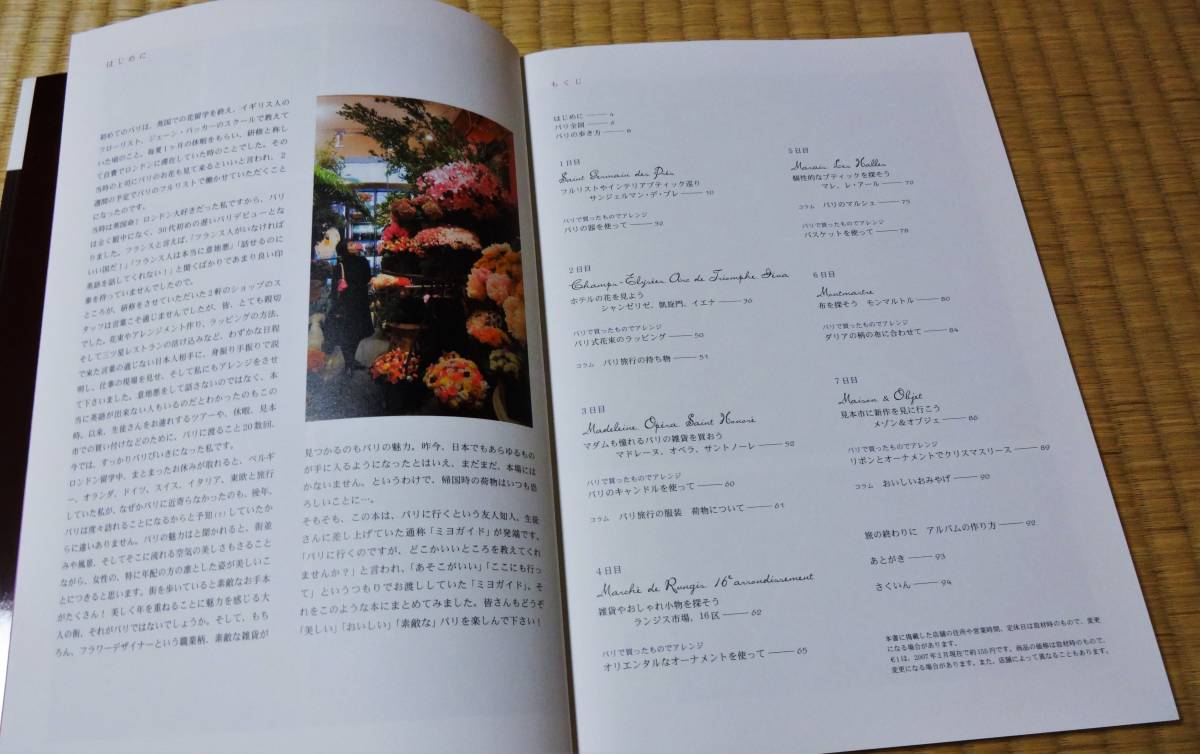 はじめに
初めてのパリは、英国での花留学を終え、イギリス人の
フローリスト、ジェーン・パッカーのスクールで教えて
いた頃のこと、毎夏1ヶ月の休暇をもらい、研修と称し
て自費でロンドンに滞在していた時のことでした。その
当時の上司にパリのお花も見て来るといいと言われ、2
週間の予定でパリのフルリストで働かせていただくこと
になったのです。
当時は英国命！ロンドン大好きだった私ですから、パリ
は全く眼中になく、30代初めの遅いパリデビューとな
りました。フランスと言えば、「フランス人がいなければ
いい国だ！」「フランス人は本当に意地悪」「話せるのに
英語を話してくれない！」と聞くばかりであまり良い印
象を持っていませんでしたので。
ところが、研修をさせていただいた2軒のショップのス
タッフは言葉こそ通じませんでしたが、皆、とても親切
でした。花束やアレンジメント作り、ラッピングの方法、
そして三ツ星レストランの活け込みなど、わずかな日程
で来た言葉の通じない日本人相手に、身振り手振りで説
明し、仕事の現場を見せ、そして私にもアレンジをさせ
て下さいました。意地悪をして話さないのではなく、本
当に英語が出来ない人もいるのだとわかったのもこの
時。以来、生徒さんをお連れするツアーや、休暇、見本
市での買い付けなどのために、パリに渡ること20数回。
今では、すっかりパリびいきになった私です。
ロンドン留学中、まとまったお休みが取れると、ベルギ
ー、オランダ、ドイツ、スイス、イタリア、東欧と旅行
していた私が、なぜかパリに近寄らなかったのも、後年、
パリは度々訪れることになるからと予知(?)していたか
らに違いありません。パリの魅力はと聞かれると、街並
みや風景、そしてそこに流れる空気の美しさもさること
ながら、女性の、特に年配の方の凛とした姿が美しいこ
とにつきると思います。街を歩いていると素敵なお手本
がたくさん！美しく年を重ねることに魅力を感じる大
人の街、それがパリではないでしょうか。そして、もち
ろん、フラワーデザイナーという職業柄、素敵な雑貨が
見つかるのもパリの魅力。昨今、日本でもあらゆるもの
が手に入るようになったとはいえ、まだまだ、本場には
かないません。というわけで、帰国時の荷物はいつも恐
ろしいことに…。
そもそも、この本は、パリに行くという友人知人、生徒
さんに差し上げていた通称「ミヨガイド」が発端です。
「パリに行くのですが、どこかいいところを教えてくれ
ませんか？」と言われ、「あそこがいい」「ここにも行っ
て」というつもりでお渡ししていた「ミヨガイド」。そ
れをこのような本にまとめてみました。皆さんもどうぞ
「美しい」「おいしい」「素敵な」パリを楽しんで下さい！
もくじ
はじめに —— 4
パリ全図 —— 5
パリの歩き方 —— 6
1日目
Saint Germain des Prés
フルリストやインテリアブティック巡り
サンジェルマン・デ・プレ —— 10
パリで買ったものでアレンジ
パリの器を使って —— 32
2日目
Champs-Élysées Arc de Triomphe Iéna
ホテルの花を見よう
シャンゼリゼ、凱旋門、イエナ —— 36
パリで買ったものでアレンジ
パリ式花束のラッピング —— 50
コラム パリ旅行の持ち物 —— 51
3日目
Madeleine Opéra Saint Honoré
マダムも憧れるパリの雑貨を買おう
マドレーヌ、オペラ、サントノーレ —— 52
パリで買ったものでアレンジ
パリのキャンドルを使って —— 60
コラム パリ旅行の服装 荷物について —— 61
4日目
Marché de Rungis 16e arrondissement
雑貨やおしゃれ小物を探そう
ランジス市場、16区 —— 62
パリで買ったものでアレンジ
オリエンタルなオーナメントを使って —— 65
5日目
Marais Les Halles
個性的なブティックを探そう
マレ、レ・アール —— 70
コラム パリのマルシェ —— 75
パリで買ったものでアレンジ
バスケットを使って —— 78
6日目
Montmartre
布を探そう モンマルトル —— 80
パリで買ったものでアレンジ
ダリアの柄の布に合わせて —— 84
7日目
Maison & Objet
見本市に新作を見に行こう
メゾン&オブジェ —— 86
パリで買ったものでアレンジ
リボンとオーナメントでクリスマスリース —— 89
コラム おいしいおみやげ —— 90
旅の終わりに アルバムの作り方 —— 92
あとがき —— 93
さくいん —— 94
本書に掲載した店舗の住所や営業時間、定休日は取材時のもので、変更
になる場合があります。
€1は、2007年2月現在で約155円です。商品の価格は取材時のもので、
変更になる場合があります。また、店舗によって異なることもあります。